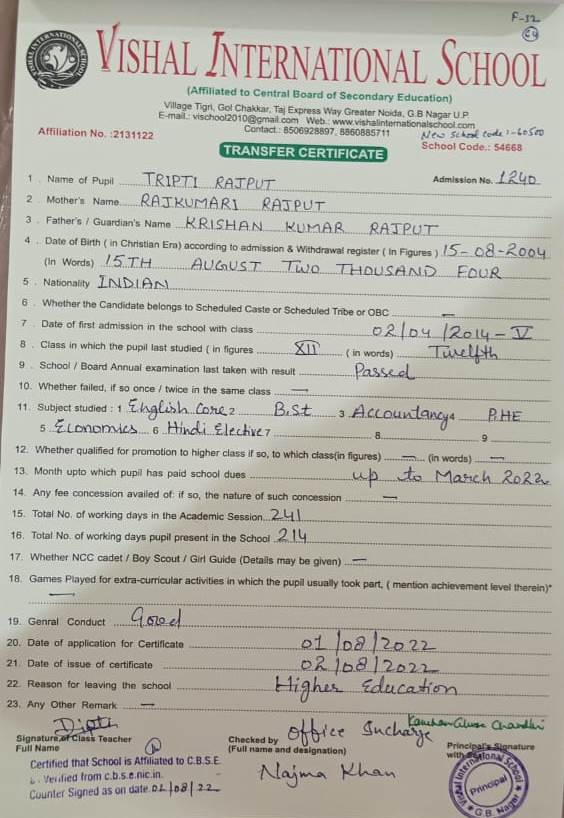 F-52
64
VISHAL INTERNATIONAL SCHOOL
(Affiliated to Central Board of Secondary Education)
Village Tigri, Gol Chakkar, Taj Express Way Greater Noida, G.B Nagar U.P.
E-mail.: vischool2010@gmail.com Web.: www.vishalinternationalschool.com
Affiliation No. :2131122 Contact.: 8506928897, 8860885711 New School code :- 60500
School Code.: 54668
TRANSFER CERTIFICATE
1 . Name of Pupil TRIPTI RAJPUT Admission No. 1240
2 . Mother's Name RAJKUMARI RAJPUT
3 . Father's / Guardian's Name KRISHAN KUMAR RAJPUT
4 . Date of Birth ( in Christian Era) according to admission & Withdrawal register ( In Figures ) 15-08-2004
(In Words) 15TH AUGUST TWO THOUSAND FOUR
5 . Nationality INDIAN
6 . Whether the Candidate belongs to Scheduled Caste or Scheduled Tribe or OBC —
7 . Date of first admission in the school with class 02/04/2014 - V
8 . Class in which the pupil last studied ( in figures XII ( in words) Twelfth
9 . School / Board Annual examination last taken with result Passed
10. Whether failed, if so once / twice in the same class —
11. Subject studied : 1 English Core 2 B.St 3 Accountancy 4 P.HE
5 Economics 6 Hindi Elective 7 8 9
12. Whether qualified for promotion to higher class if so, to which class(in figures) — (in words) —
13. Month upto which pupil has paid school dues up to March 2022
14. Any fee concession availed of: if so, the nature of such concession —
15. Total No. of working days in the Academic Session 241
16. Total No. of working days pupil present in the School 214
17. Whether NCC cadet / Boy Scout / Girl Guide (Details may be given) —
18. Games Played for extra-curricular activities in which the pupil usually took part, ( mention achievement level therein)*
—
19. Genral Conduct Good
20. Date of application for Certificate 01/08/2022
21. Date of issue of certificate 02/08/2022
22. Reason for leaving the school Higher Education
23. Any Other Remark —
Signature of Class Teacher
Full Name
Checked by Office Incharge
(Full name and designation)
Najma Khan
Principal's Signature
with
Certified that School is Affiliated to C.B.S.E.
Verified from c.b.s.e.nic.in.
Counter Signed as on date. 02/08/22
Vishal International School
Principal
G.B. Nagar